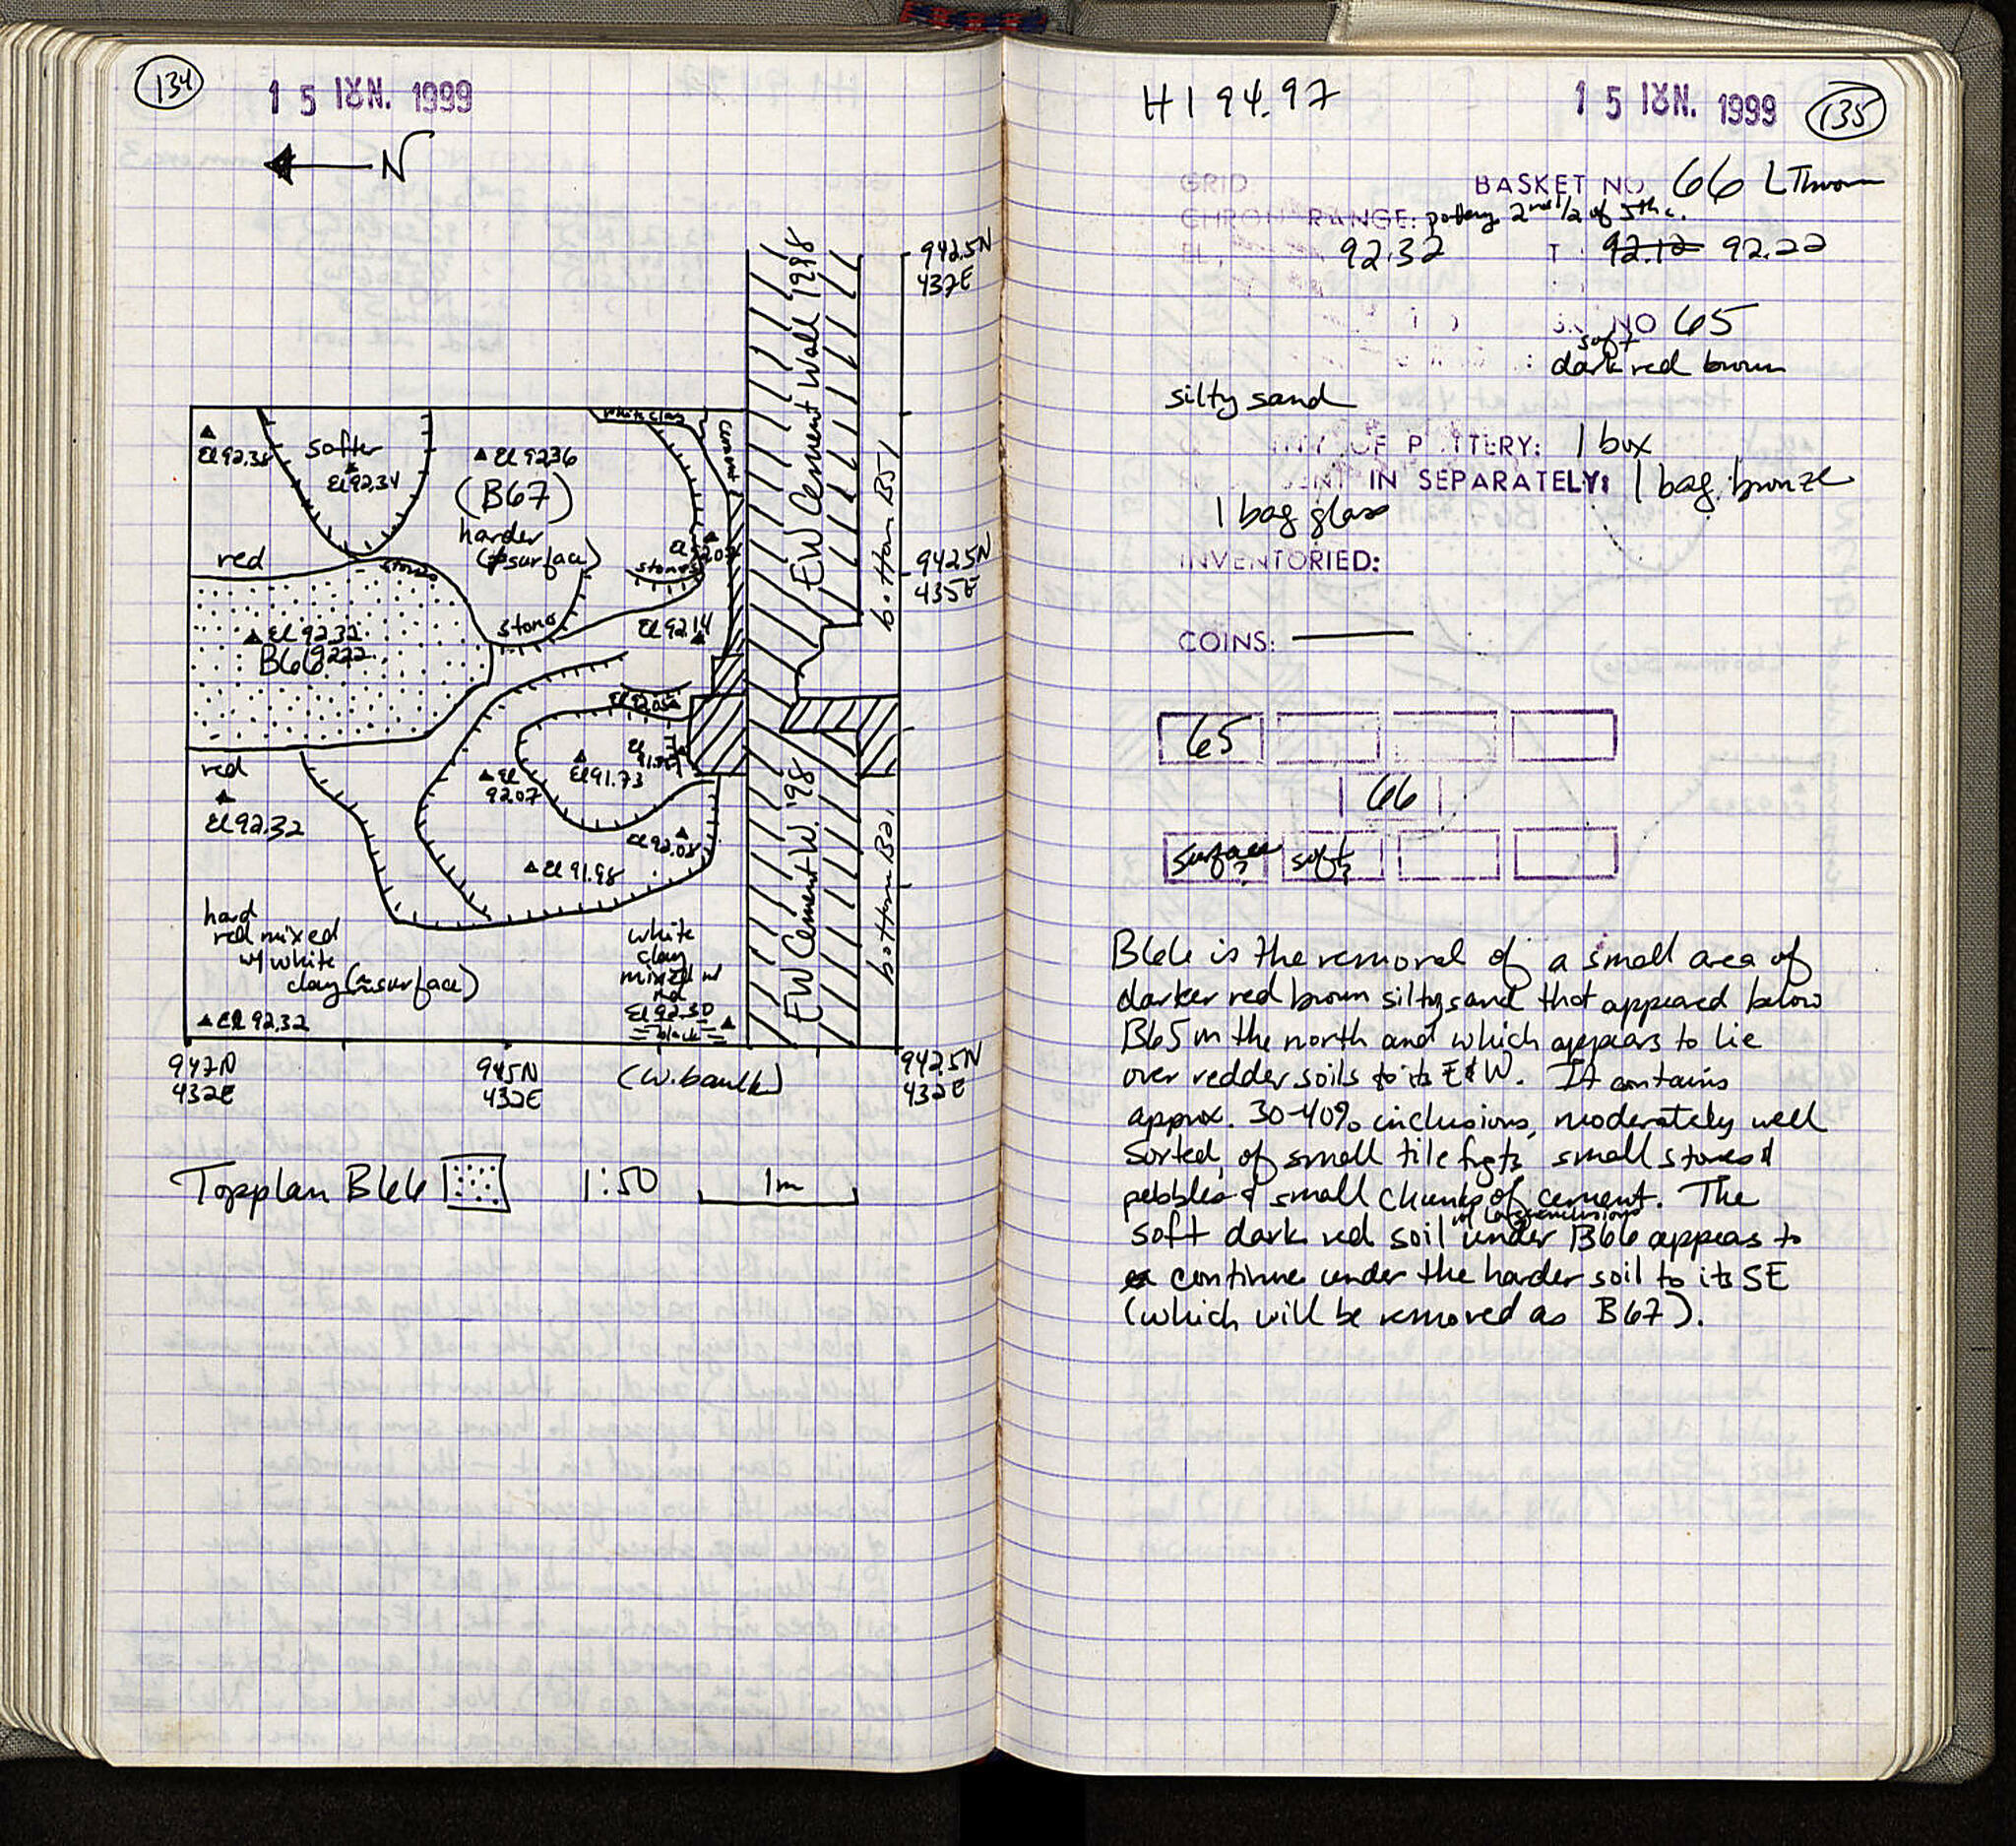 134
15 ΙΟΥΝ. 1999
N
942.5N
437E
EW Cement Wall 1998
bottom B51
942.5N
435E
white clay
cement
El 92.38
softer
El 92.34
El 92.36
(B67)
harder
surface)
red
stones
stones
stones
El 92.14
El 92.32
B66 92.22
El 91.73
El
92.07
El 92.08
El 91.98
red
El 92.32
EW Cement W. '98
bottom B21
hard
red mixed
w/ white
clay (≈surface)
El 92.32
white
clay
mixed w
red
El 92.30
=black=
947N
432E
945N
432E
(W. baulk)
942.5N
432E
Topplan B66
1:50
1m
H 1 94.97
15 ΙΟΥΝ. 1999
135
GRID
BASKET NO 66 L Thrown
CHRON RANGE: pottery 2nd 1/2 of 5th c.
92.32 T: 92.12 92.22
NO 65
soft
: dark red brown
silty sand
OF POTTERY: 1 box
IN SEPARATELY: 1 bag bronze
1 bag glass
INVENTORIED:
COINS: —
65
66
surface? soft?
B66 is the removal of a small area of
darker red brown silty sand that appeared below
B65 in the north and which appears to lie
over redder soils to its E & W. It contains
approx. 30-40% inclusions, moderately well
sorted, of small tile fgts, small stones &
pebbles & small chunks of cement. The
w/ large inclusions
soft dark red soil under B66 appears to
continue under the harder soil to its SE
(which will be removed as B67).